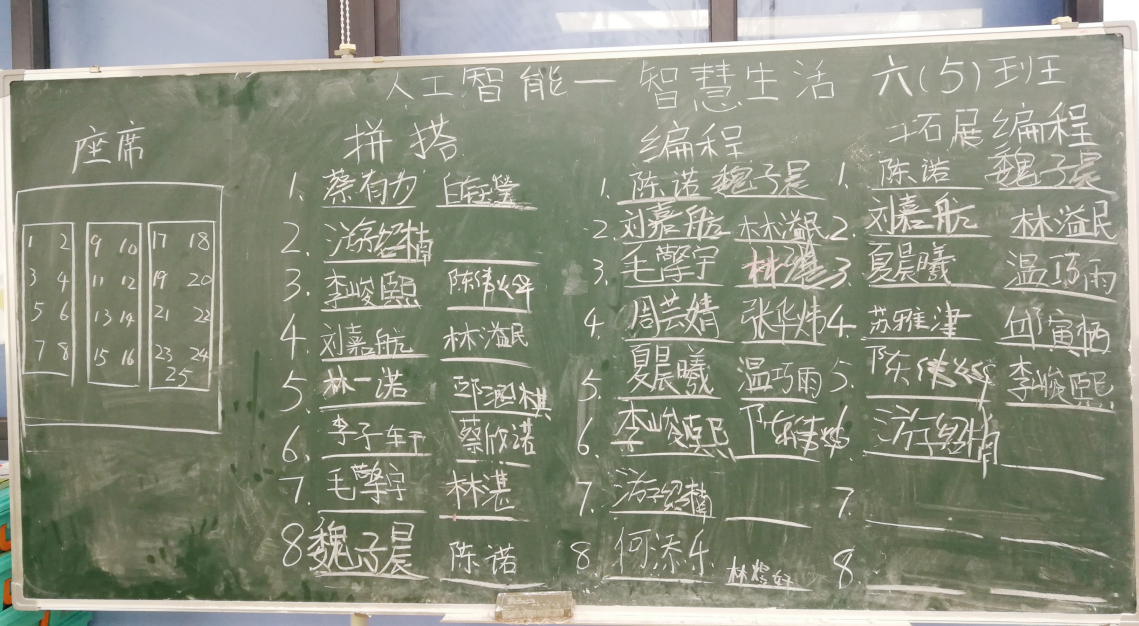 人工智能一智慧生活 六(5)班
座席
1 2 9 10 17 18
3 4 11 12 19 20
5 6 13 14 21 22
7 8 15 16 23 24
25
拼搭
1. 蔡有为
2. 游绍楠
3. 李峻熙 陈伟烨
4. 刘嘉航 林溢民
5. 林一诺 邱涵棋
6. 李子轩 蔡欣诺
7. 毛擎宇 林湛
8 魏子晨 陈诺
编程
1. 陈诺 魏子晨
2. 刘嘉航 林溢民
3. 毛擎宇 林湛
4. 周芸婧 张华炜
5. 夏晨曦 温巧雨
6. 李峻熙 陈伟烨
7. 游绍楠
8 何添乐
拓展编程
1. 陈诺 魏子晨
2. 刘嘉航 林溢民
3. 夏晨曦 温巧雨
4. 苏雅津 邱寅栖
5. 陈伟烨 李峻熙
6. 游绍楠
7.
8.